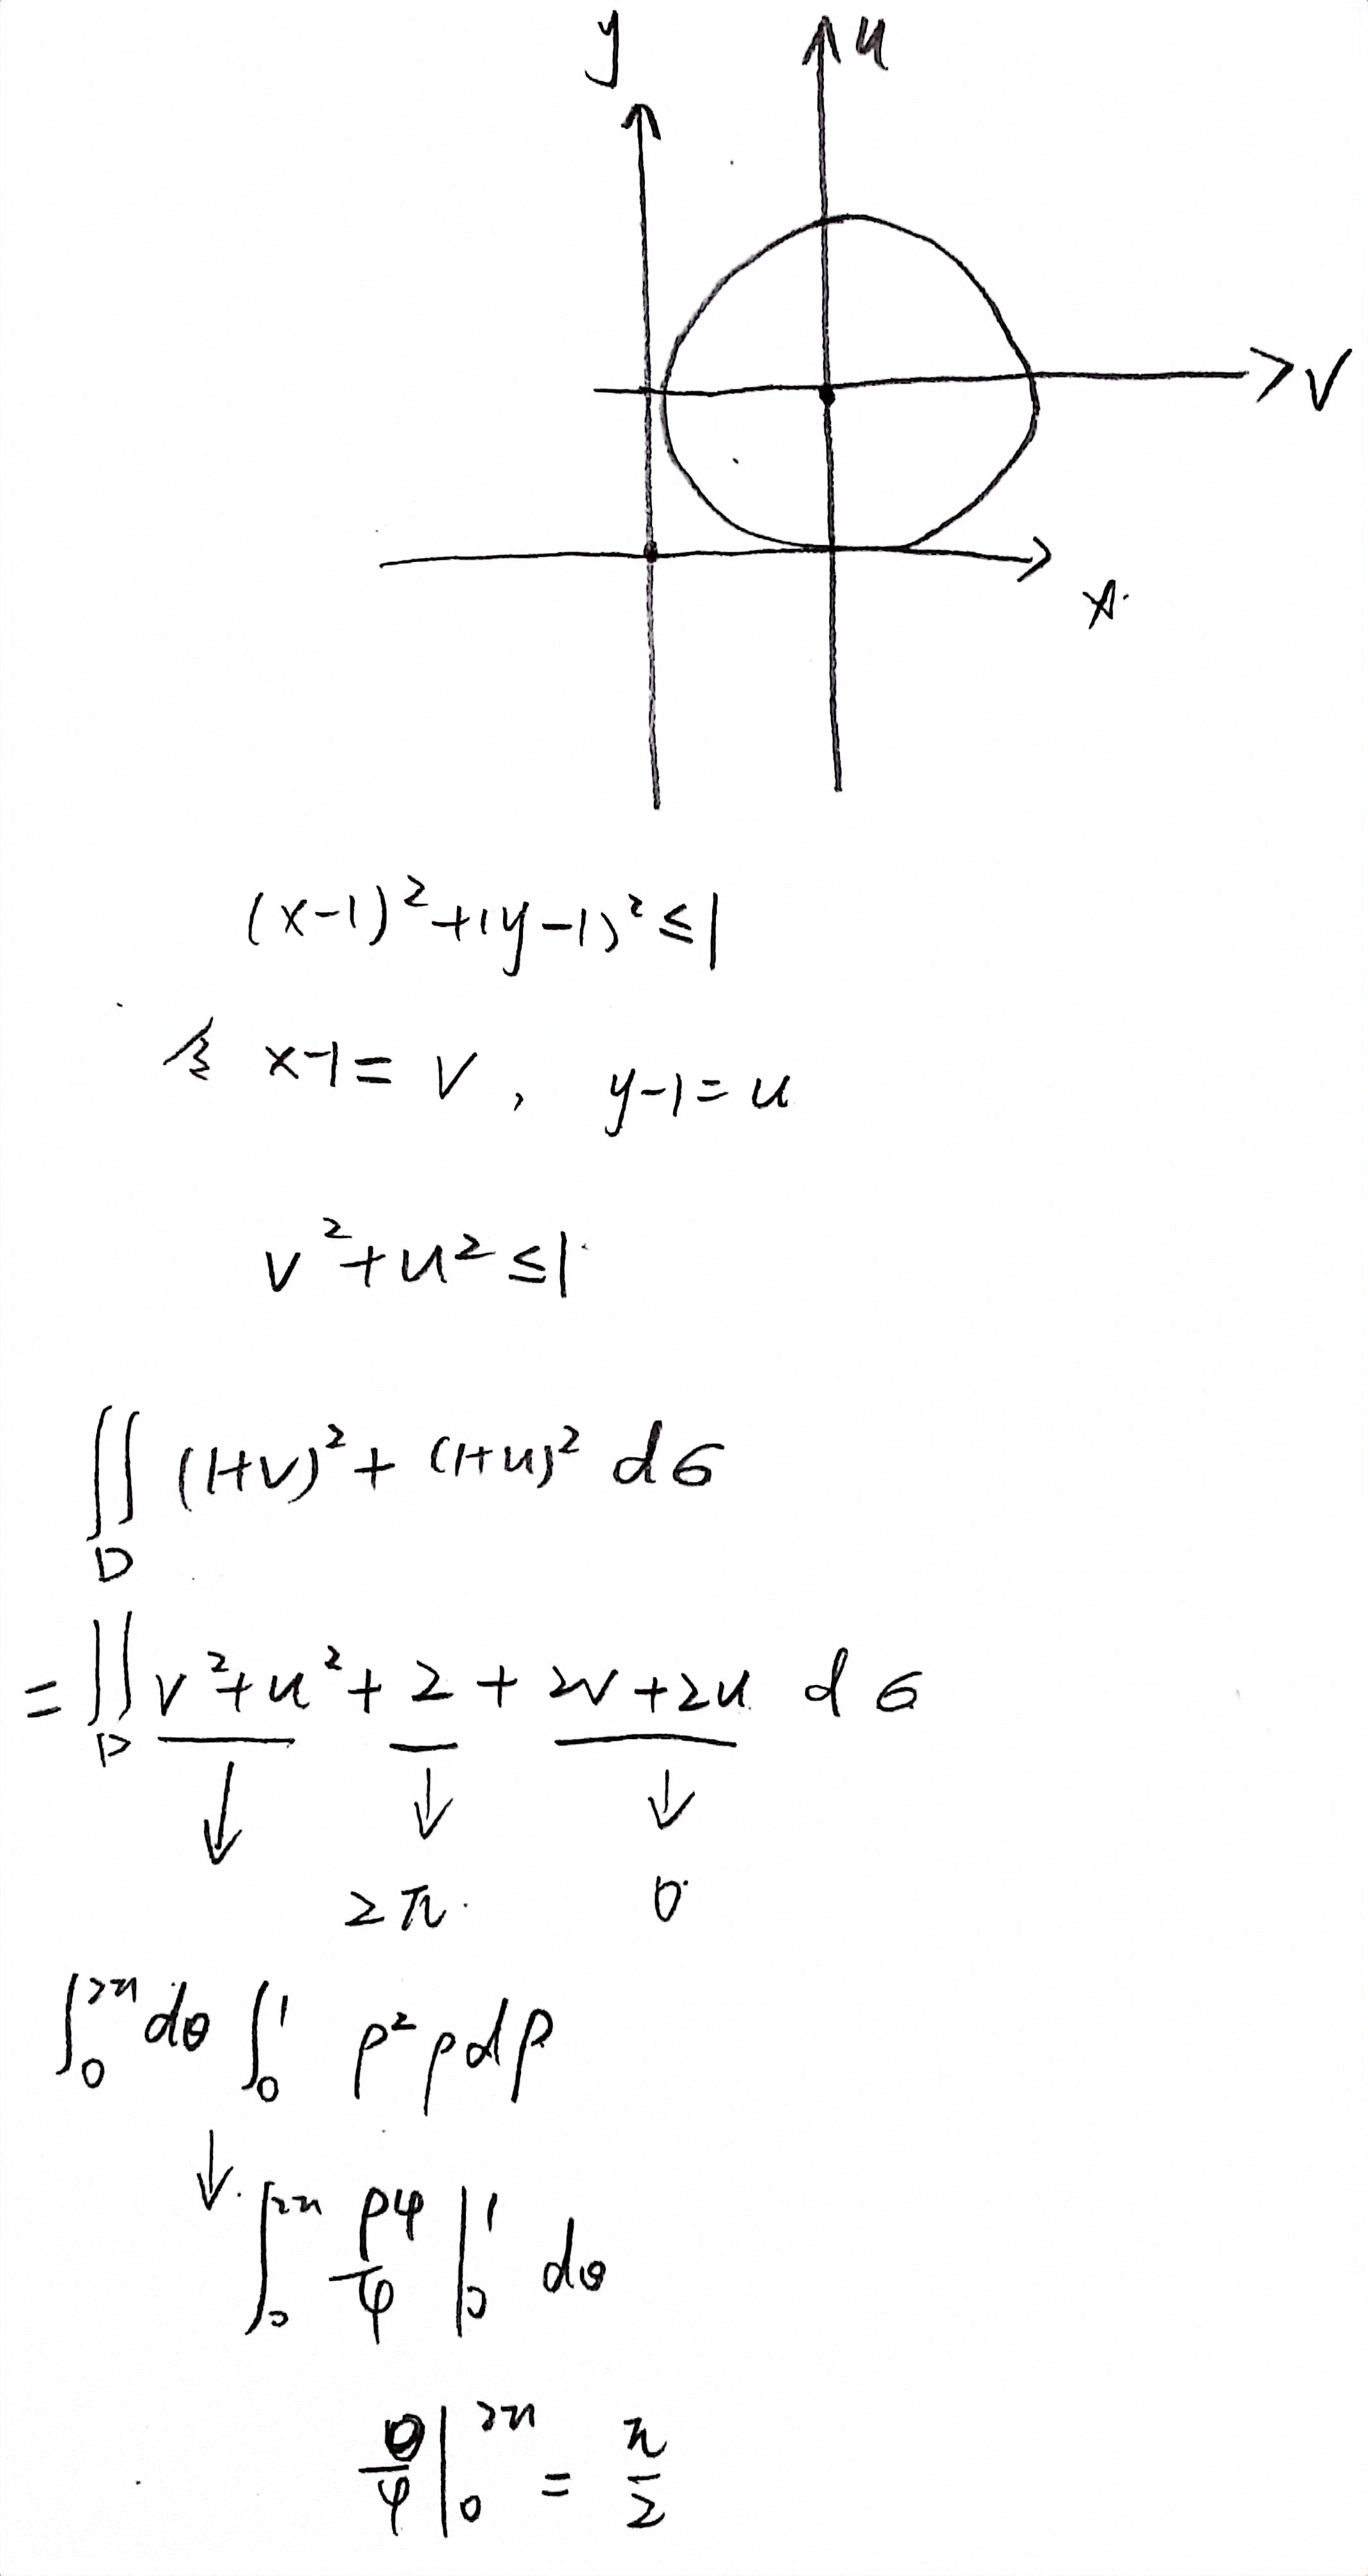 y
u
v
x
(x-1)²+(y-1)²≤1
令 x-1=v, y-1=u
v²+u²≤1
∬ (1+v)²+(1+u)² dσ
D
=∬ v²+u²+2+2v+2u dσ
D
↓ ↓ ↓
2π 0
∫₀^2π dθ ∫₀^1 ρ²ρdρ
↓ ∫₀^2π ρ⁴/4 |₀^1 dθ
θ/4 |₀^2π = π/2